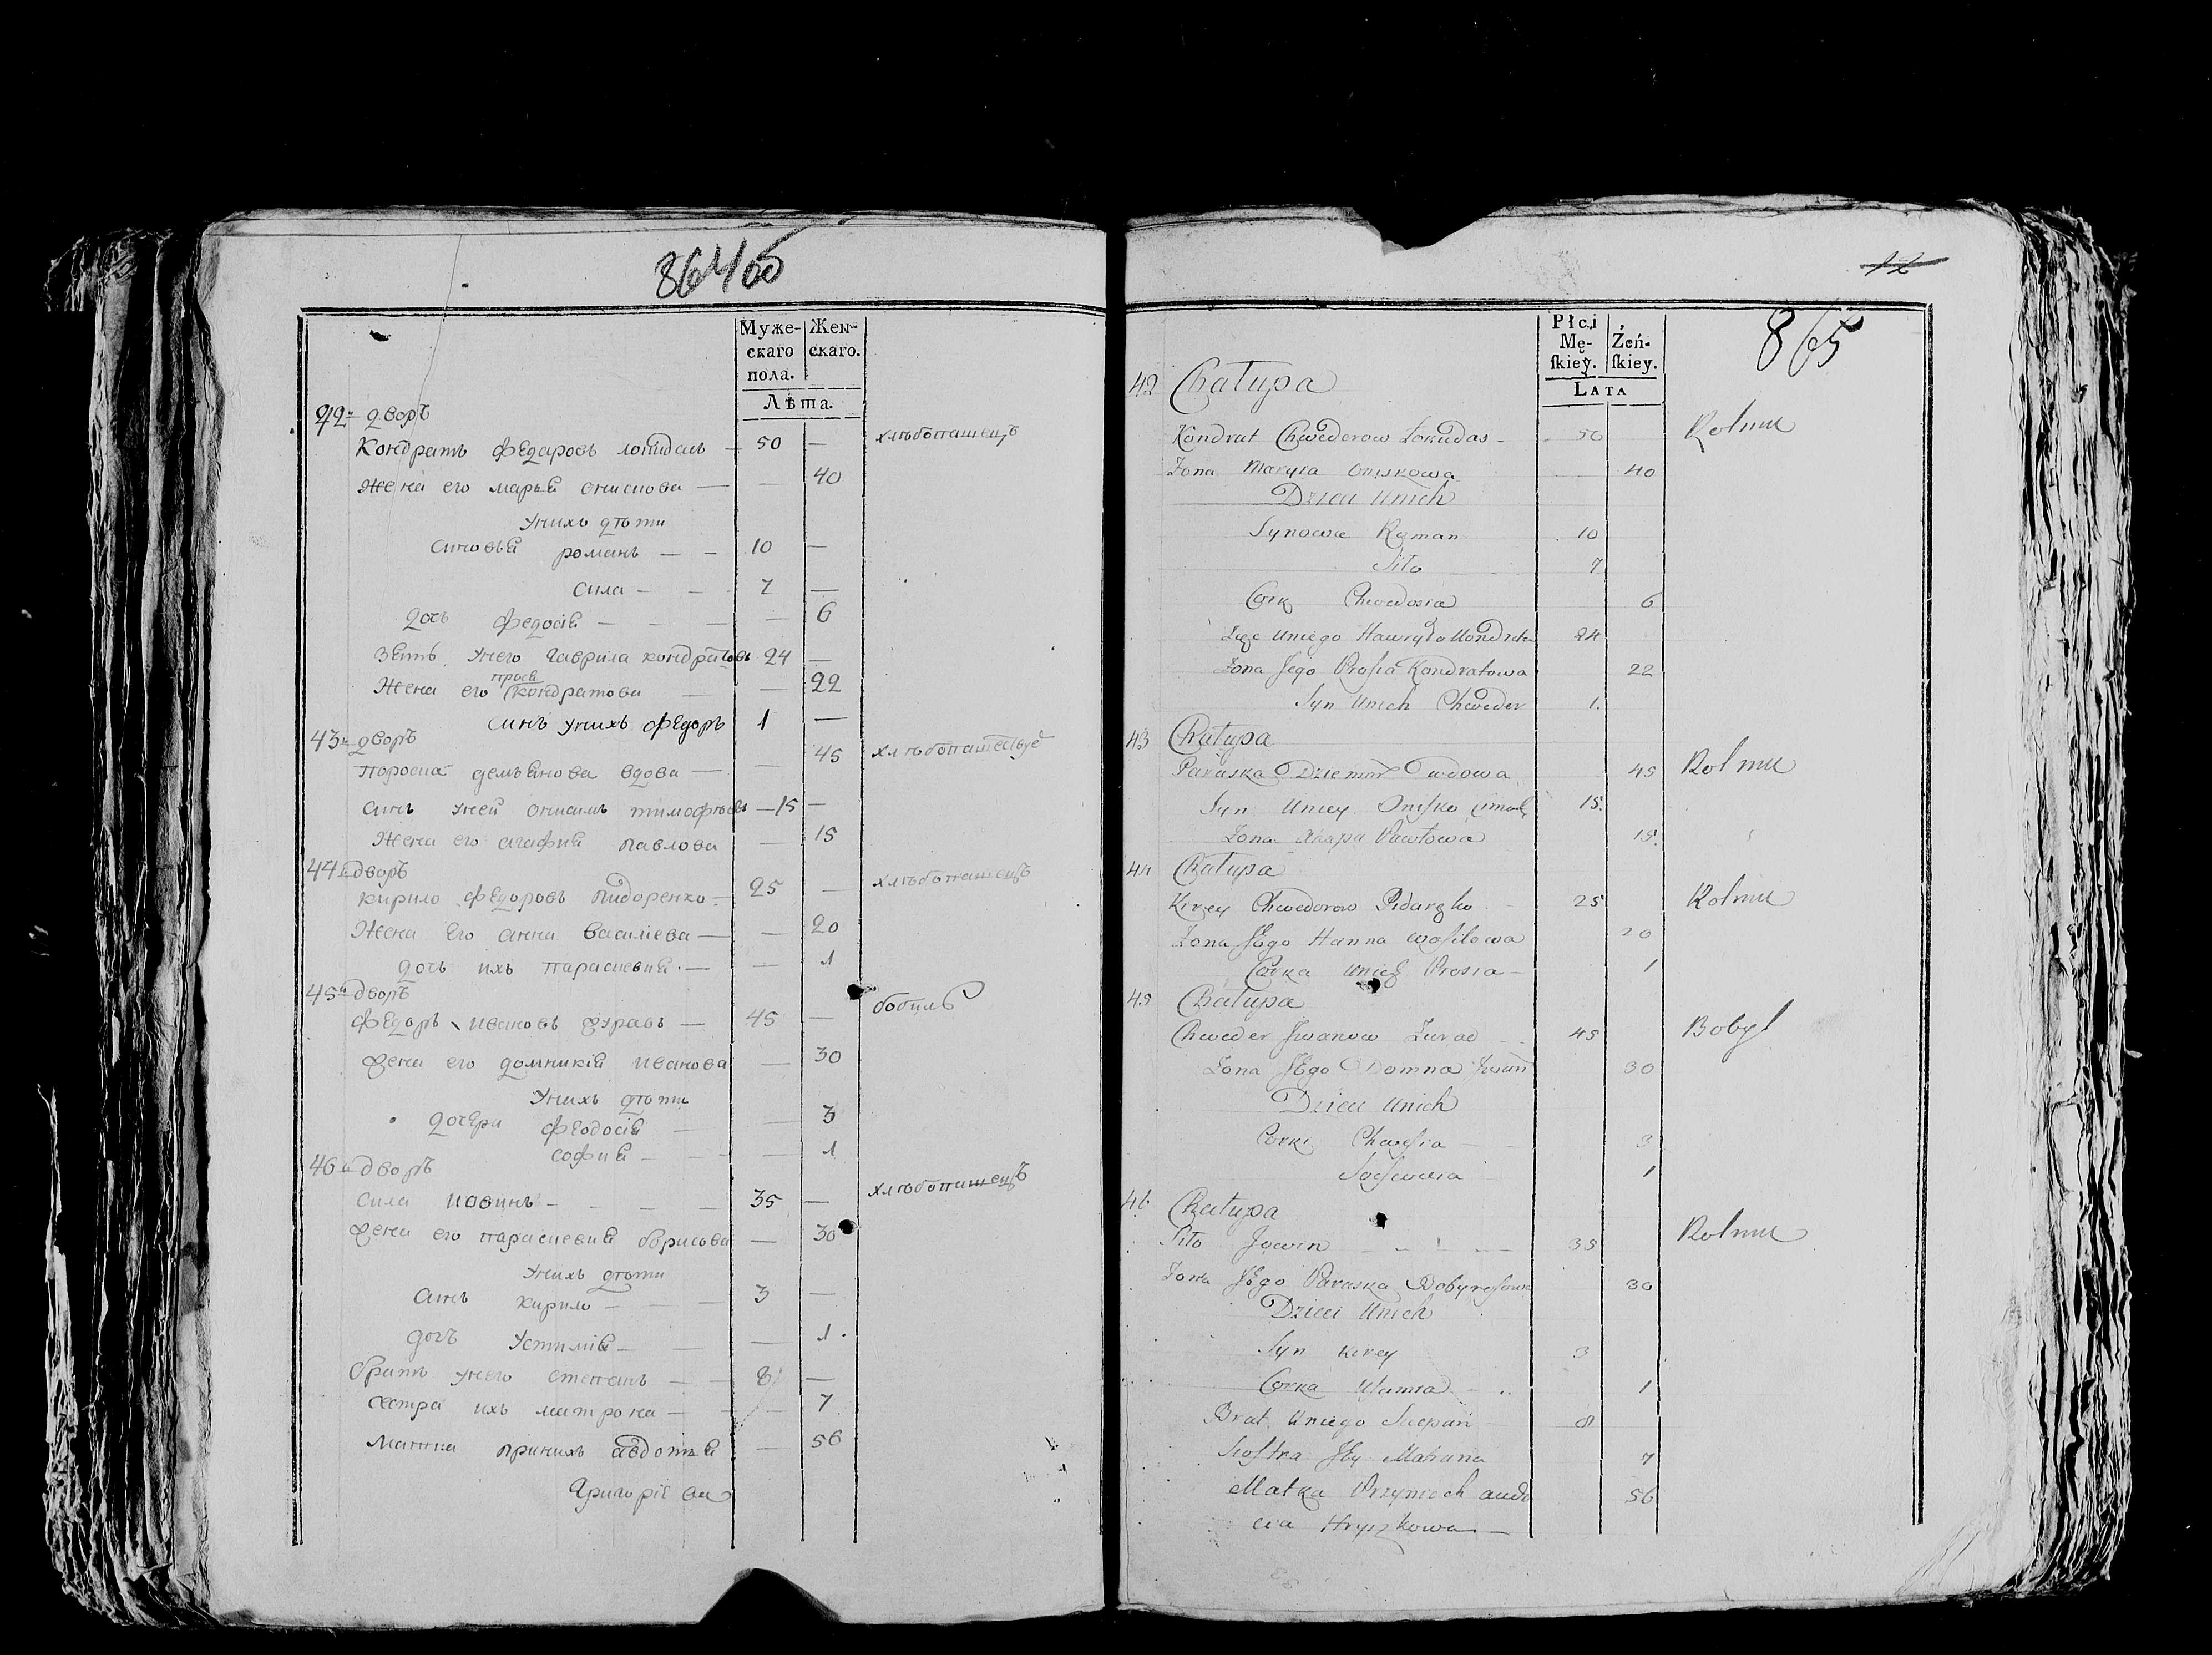 864об
Муже-
скаго
пола.
Жен-
скаго.
Лѣта.
42й дворъ
Кондратъ Федаровъ — 50 — хлѣбопашецъ
Жена его марья онискова — — 40
Унихъ дѣти
синовья романъ — — 10 —
сила — — 7 —
дочь федосія — — — — 6
зять унего гаврила кондратовъ 24 —
прося
Жена его кондратова — — 22
синъ унихъ федоръ 1 —
43й дворъ
параска демьянова вдова — — 45
синъ уней онисимъ тимофѣевъ — 15 —
Жена его агафия павлова — 15
44й дворъ
кирило федоровъ пидоренко — 25 — хлѣбопашецъ
Жена его анна василиева — — 20
дочь ихъ парасковия — — 1
45й дворъ
федоръ ивановъ журавъ — 45 — бобиль
жена его домникія иванова — 30
Унихъ дѣти
дочери феодосія — — 3
софия — — — — 1
46й дворъ
сила иовинъ — — — — 35 — хлѣбопашецъ
жена его парасковия борисова — 30
Унихъ дѣти
синъ кирило — — — 3 —
дочъ Устимія — — — 1
братъ унего степанъ — — 8 —
сестра ихъ матрона — — — 7
матка принихъ авдотья — 56
григоріева
12
865
Płci
Mę-
ſkiey.
Żeń-
ſkiey.
LATA
42 Chałupa
Kondrat Chwederow Łokudas — 50 Rolnik
Zona Maryia Oniskowa 40
Dzieci Unich
Synowie Roman 10
Siło 7
Corka Chwedosia 6
Zięc Uniego Hawryło Kondrato 24
Zona Jego Prosia Kondratowa 22
Syn Unich Chweder 1.
43 Chałupa
Paraska Dziemian wdowa 45 Rolnik
Syn Uniey Onisko 15.
Zona Ahapa Pawłowa 15.
44 Chałupa
Kirey Chwedorow Pidarenko 25 Rolnik
Zona Jego Hanna Wasilowa 20
Corka Unich Prosia — 1
45 Chałupa
Chweder Jwanow Zurad 45 Bobyl
Zona Jego Domna Jwan 30
Dzieci Unich
Corki Chwesia — 3
1
46 Chałupa
Siło Jowin — — — 35 Rolnik
Zona Jego Paraska 30
Dzieci Unich
Syn Kirey 3
Corka Ustimia 1
Brat Uniego Sciepan 8
Siostra Jch Matruna 7
Matka Przynich audo 56
cia Hryszkowa —